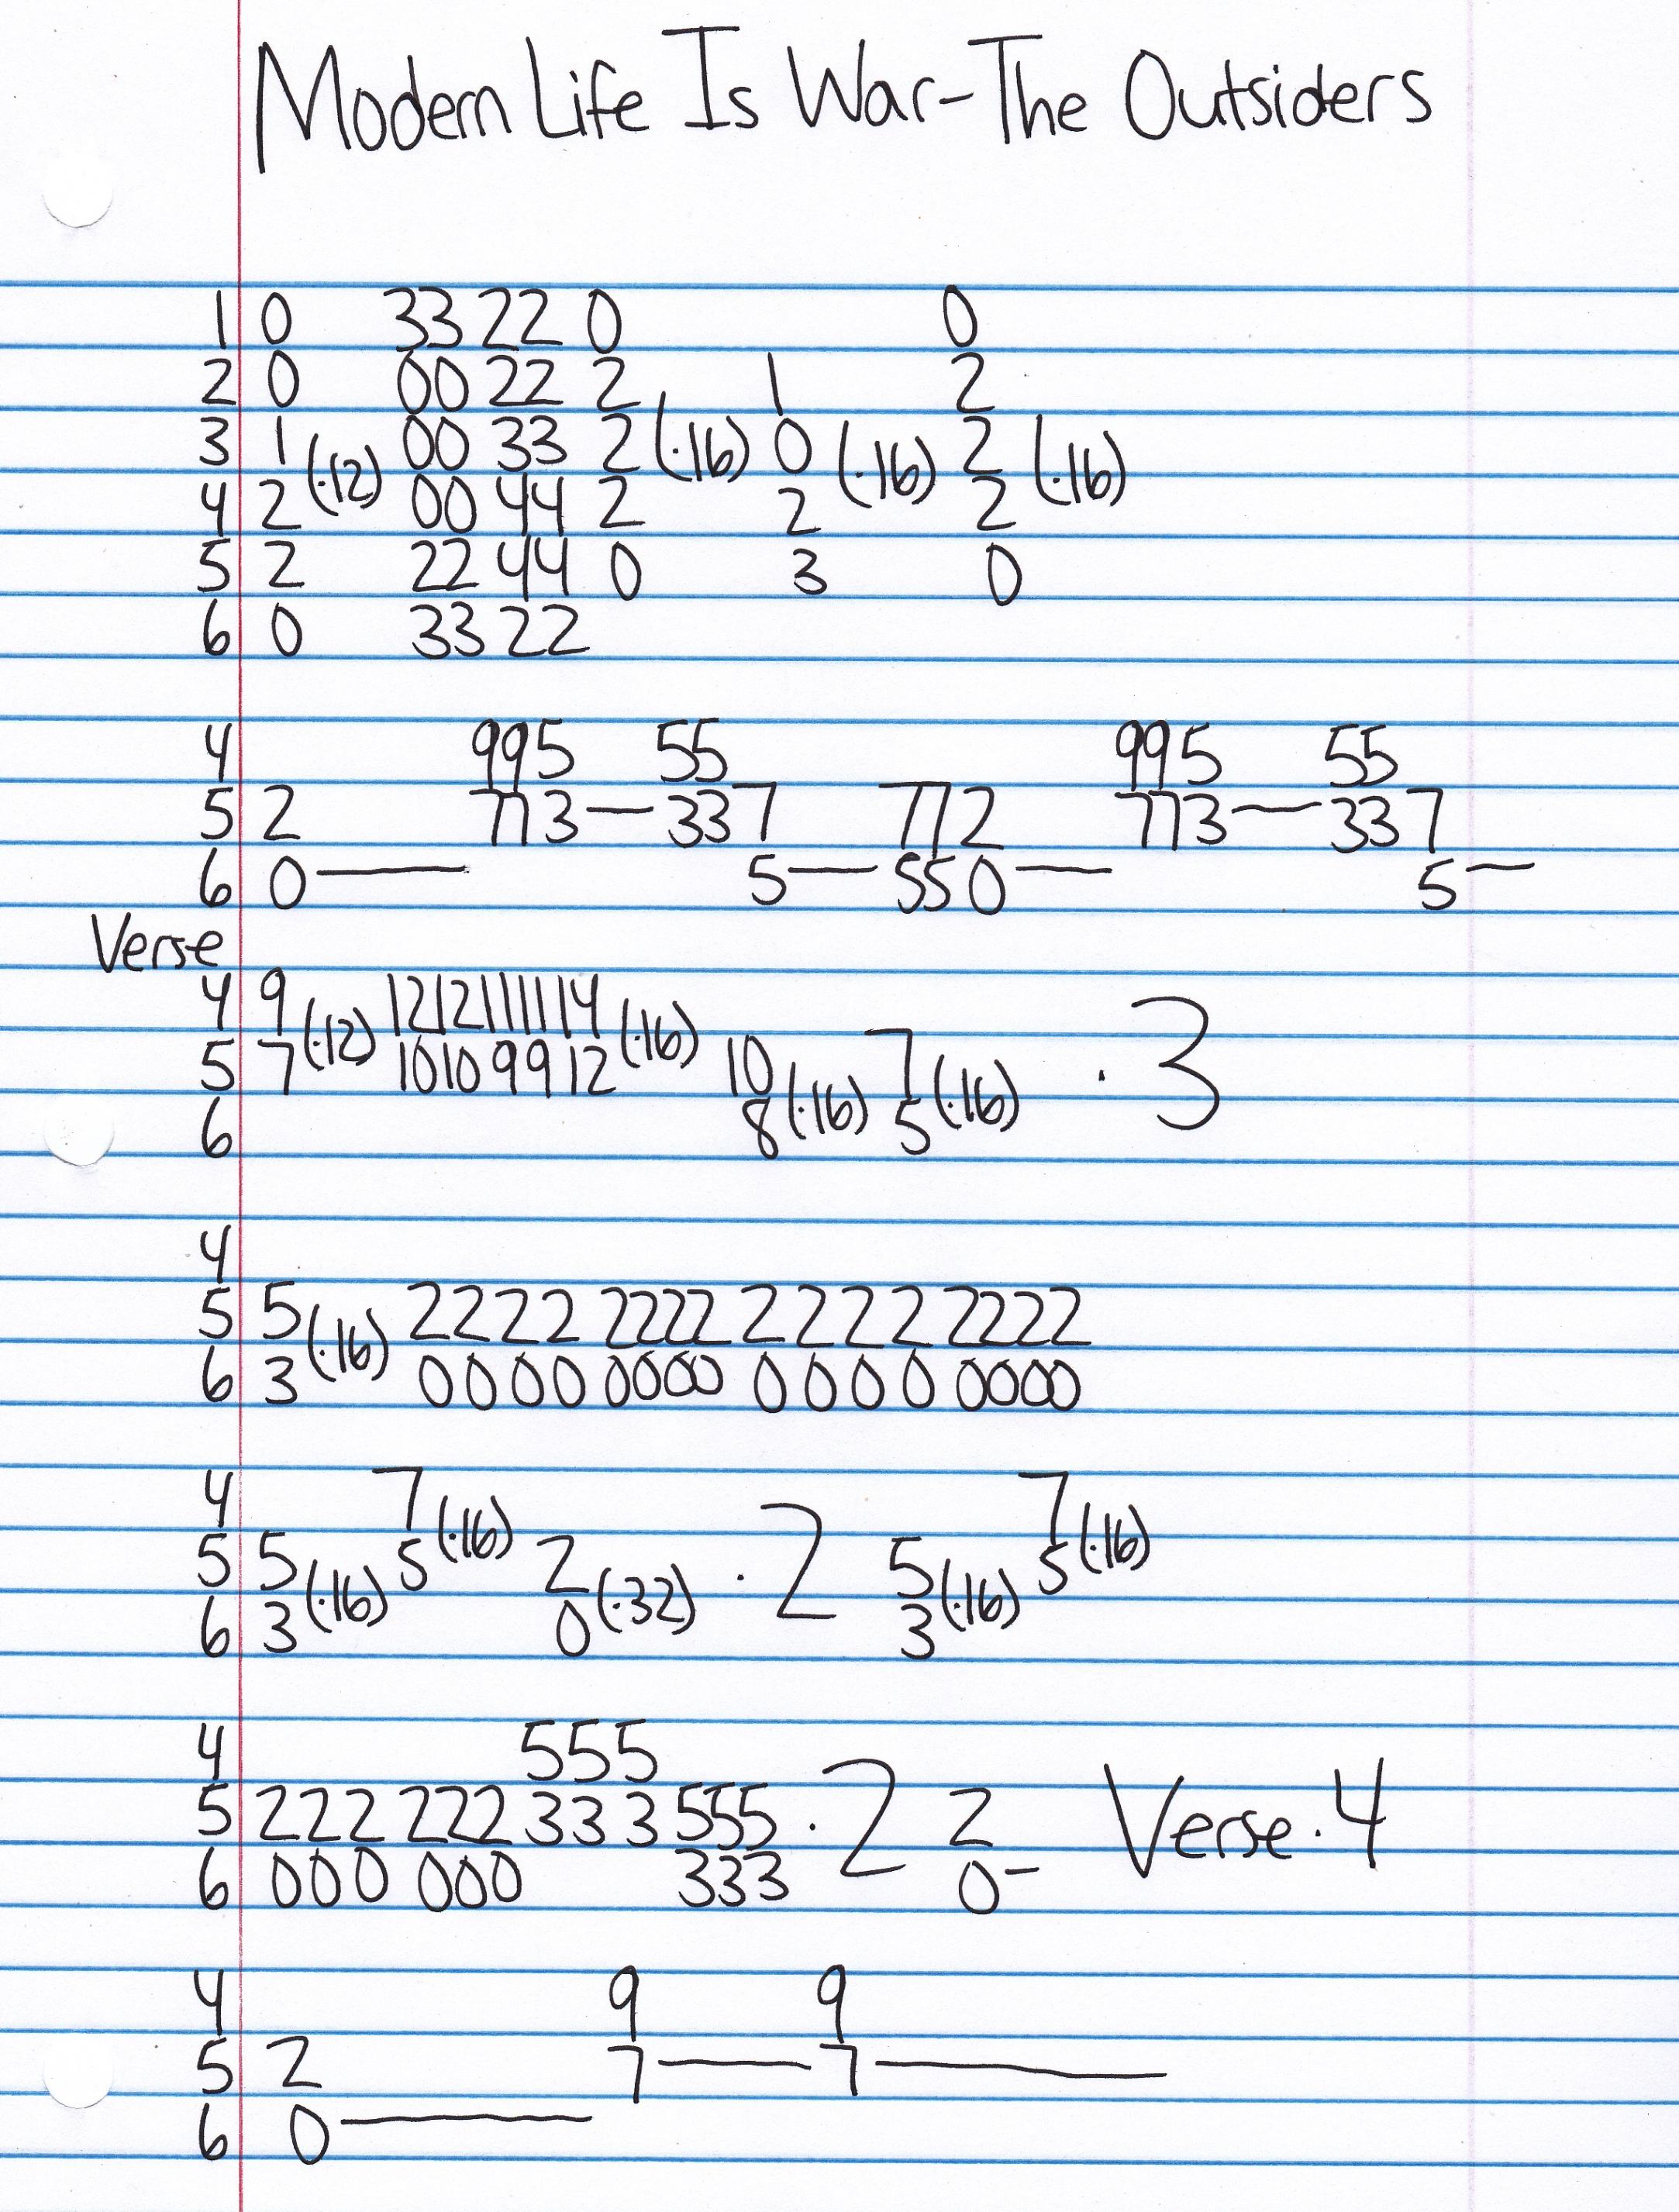 Modern Life Is War-The Outsiders
1 0 33 22 0 0
2 0 00 22 2 1 2
3 1 (·12) 00 33 2 (·16) 0 (·16) 2 (·16)
4 2 00 44 2 2 2
5 2 22 44 0 3 0
6 0 33 22
4 995 55 995 55
5 2 773—337 772 773—337
6 0— 5—550— 5—
Verse
4 9 (·12) 1212111114 (·16)
5 7 1010 9912 10 7
6 8(·16) 5(·16) ·3
4
5 5 (·16) 2222 2222 2222 2222
6 3 0000 0000 0000 0000
4 7 (·16) 7 (·16)
5 5 5 2 ·2 5 5
6 3 (·16) 0 (·32) 3 (·16)
4 555
5 222 222 333 555 ·2 2 Verse·4
6 000 000 333 0-
4 9 9
5 2 7—7—
6 0—